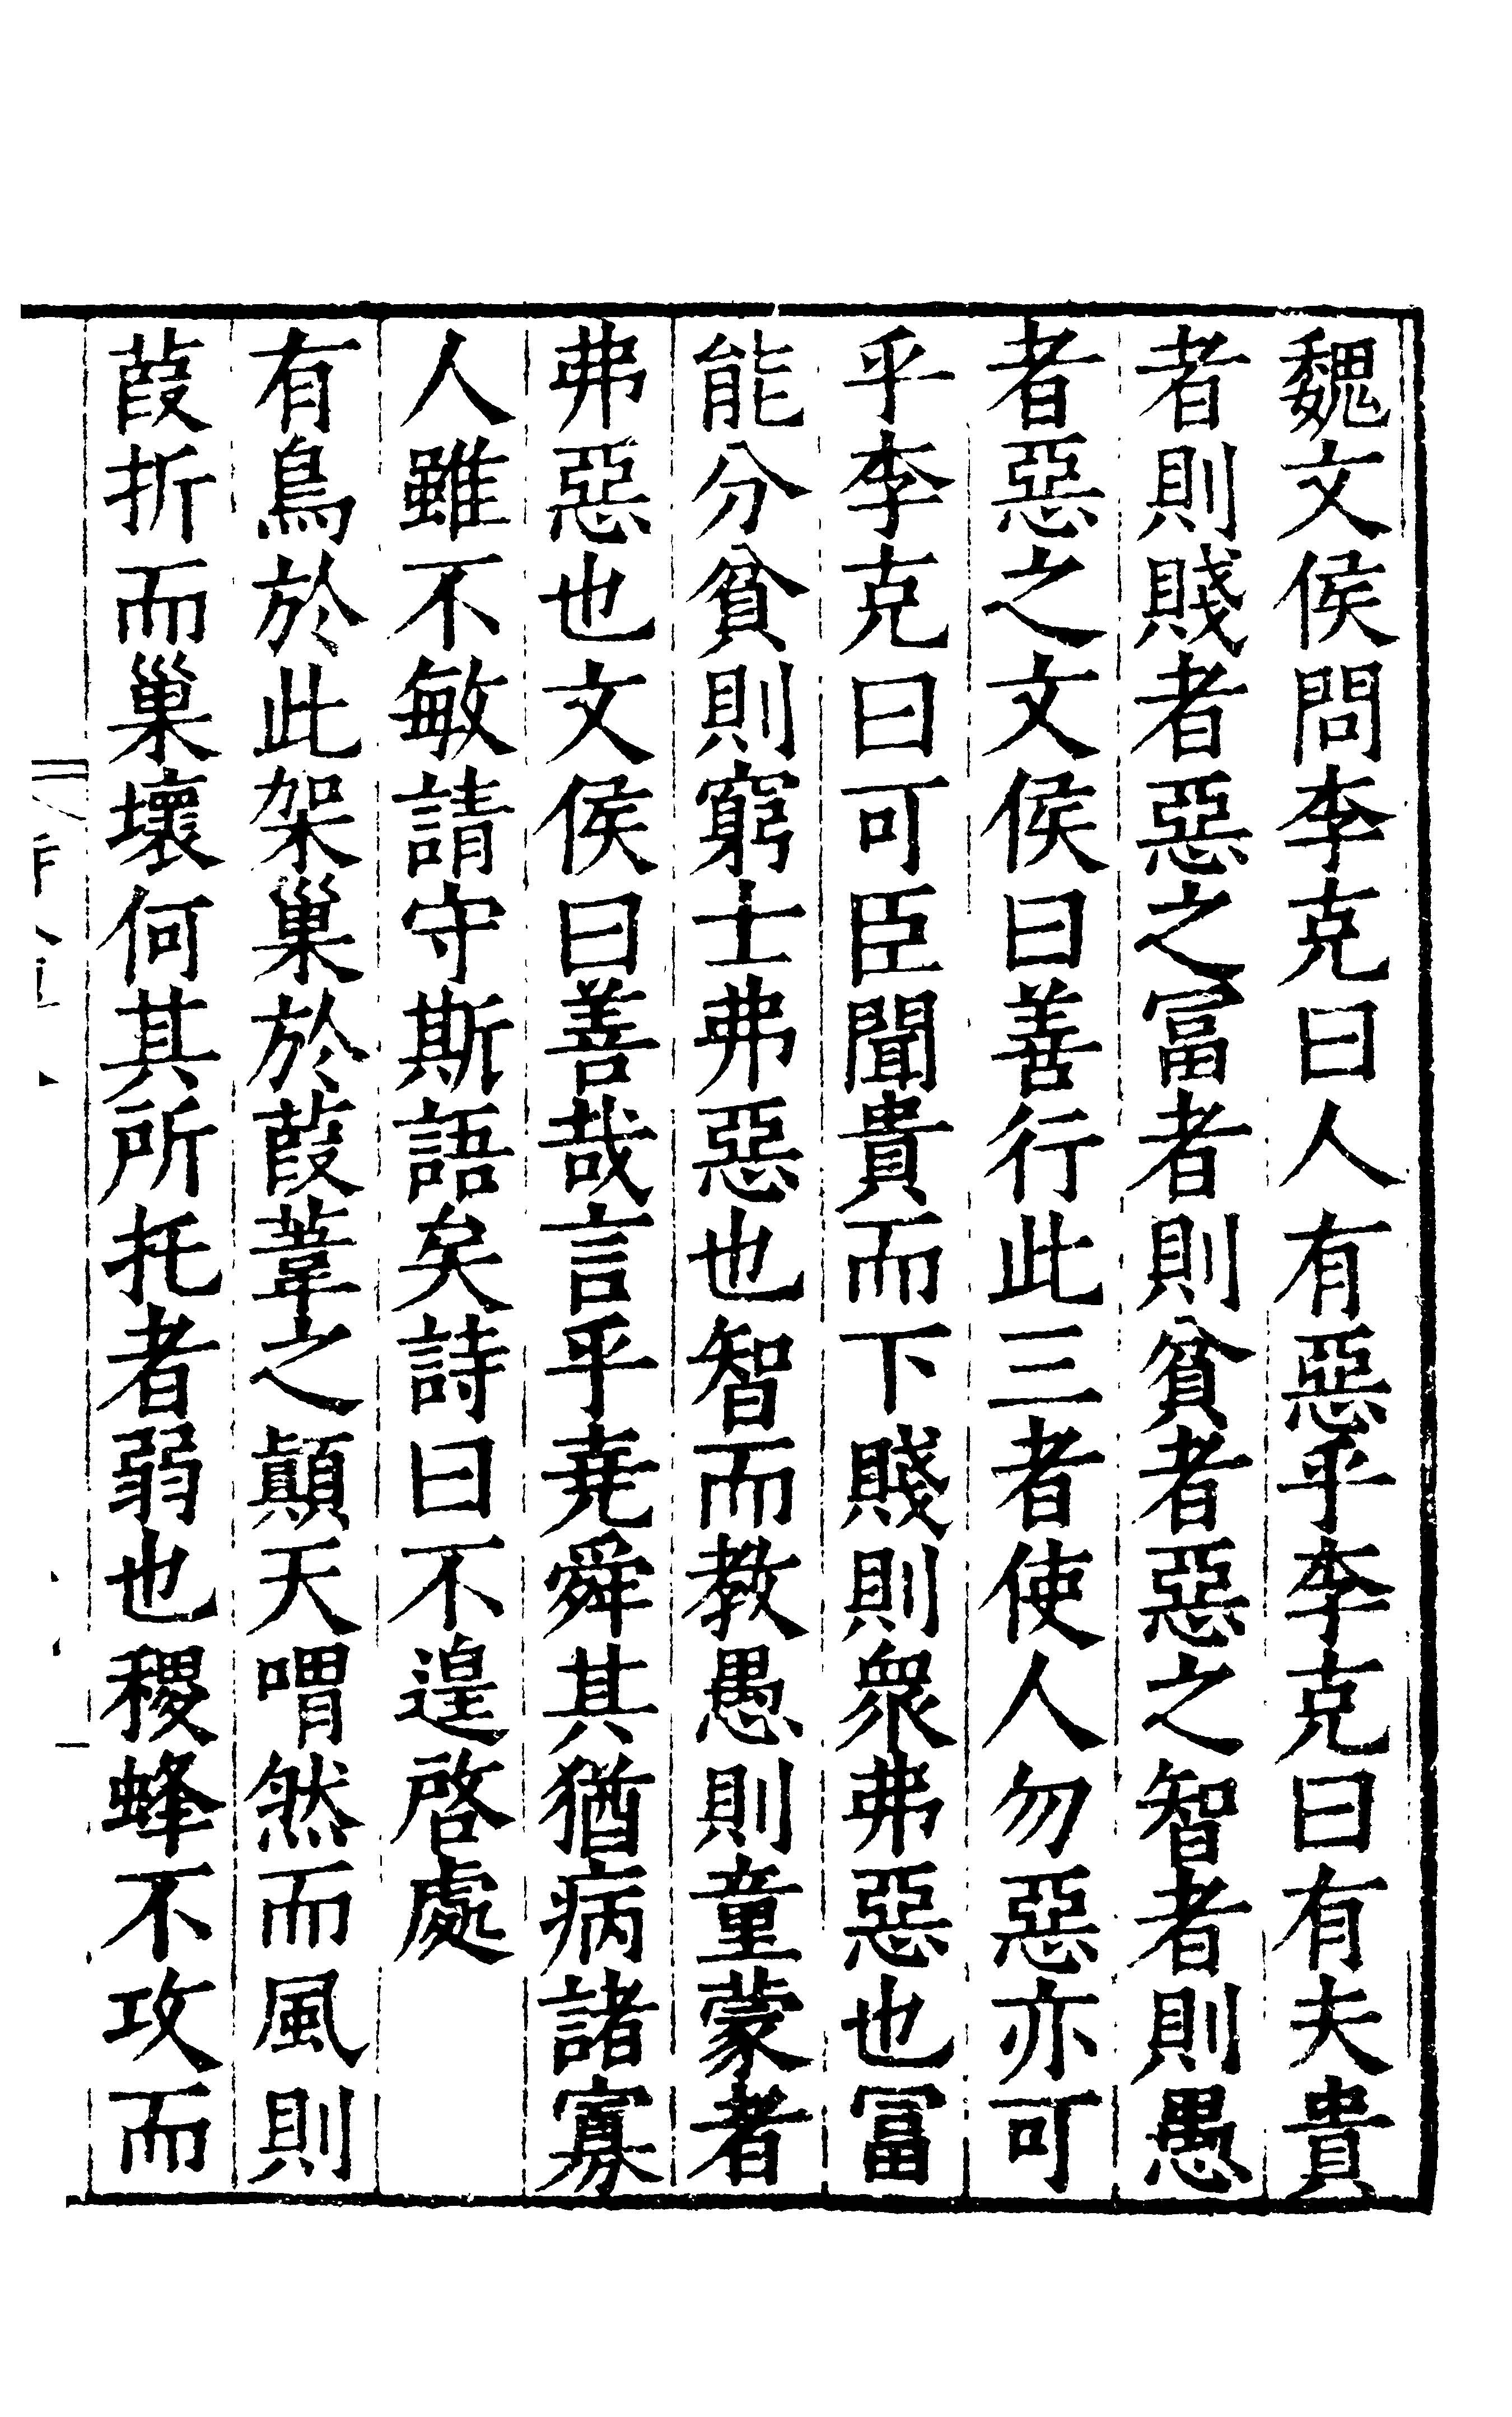 魏文侯問李克曰人有惡乎李克曰有夫貴
者則賤者惡之冨者則貧者惡之智者則愚
者惡之文侯曰善行此三者使人勿惡亦可
乎李克曰可臣聞貴而下賤則衆弗惡也冨
能分貧則窮士弗惡也智而教愚則童蒙者
弗惡也文侯曰善哉言乎尭舜其猶病諸寡
人雖不敏請守斯語矣詩曰不遑啓處
有鳥於此架巢於葭葦之顛天喟然而風則
葭折而巢壞何其所托者弱也稷蜂不攻而